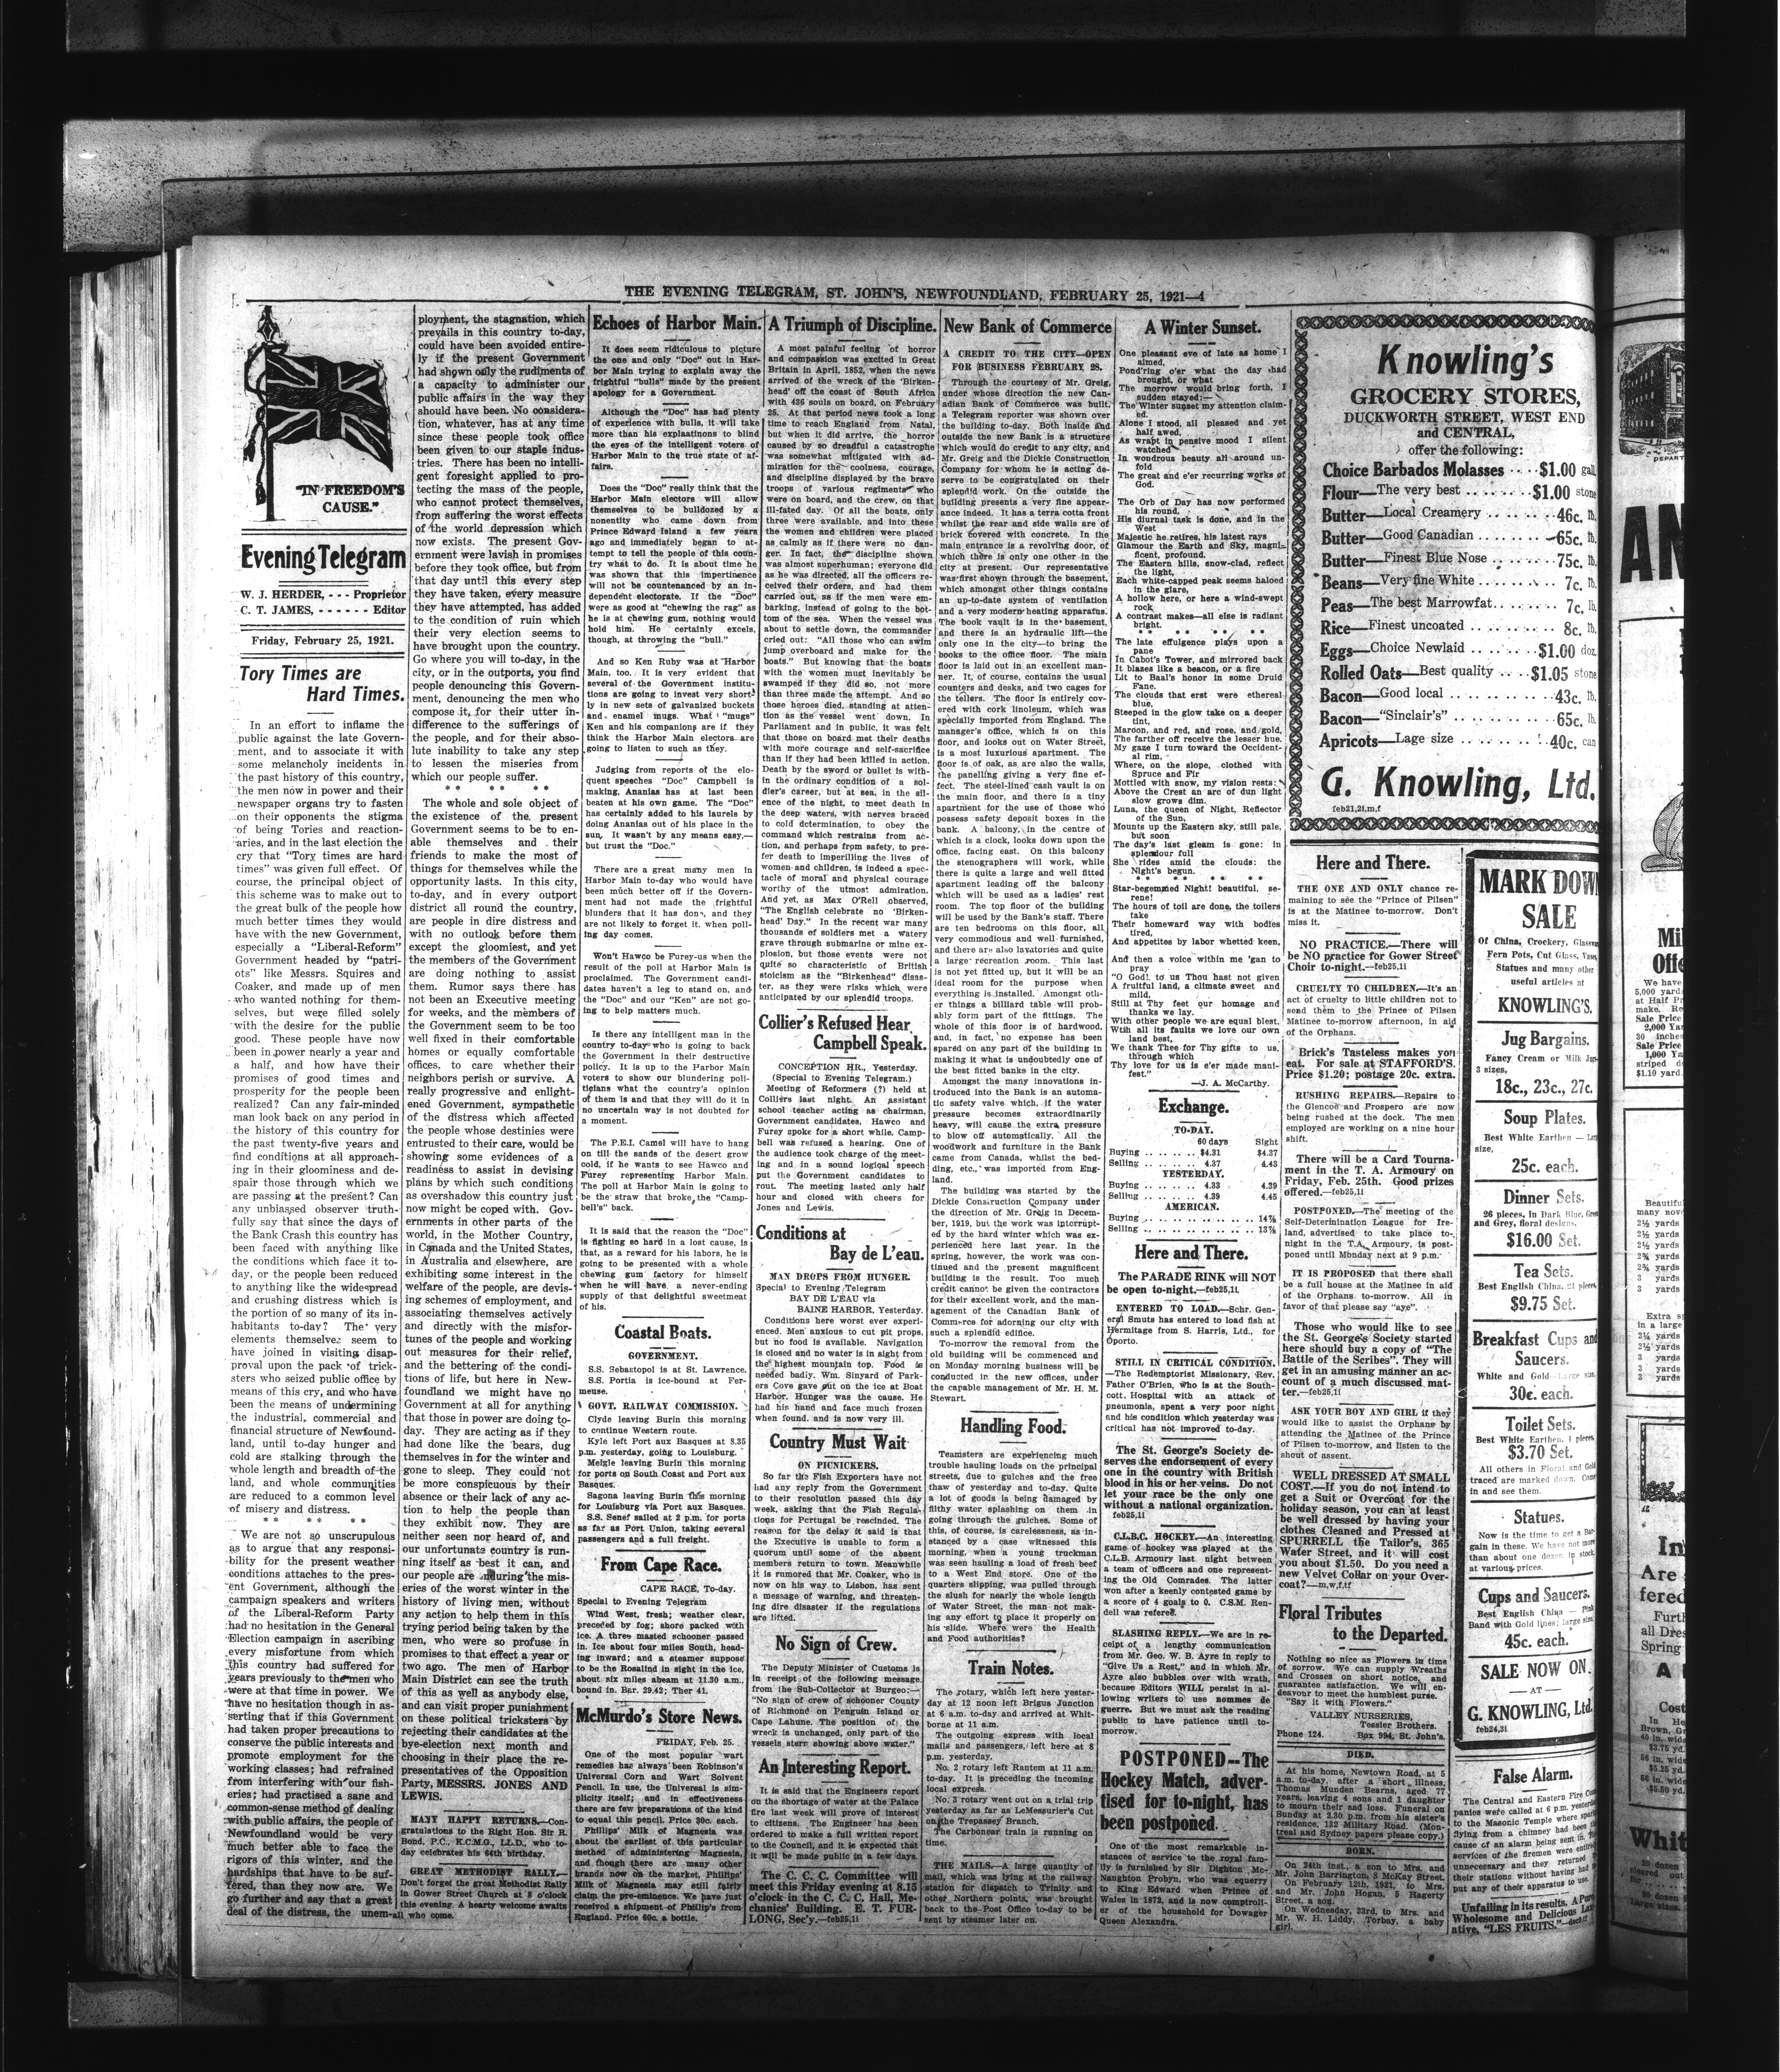 THE EVENING TELEGRAM, ST. JOHN'S, NEWFOUNDLAND, FEBRUARY 25, 1921—4
"IN FREEDOM'S
CAUSE."
Evening Telegram
W. J. HERDER, - - - Proprietor
C. T. JAMES, - - - - - - Editor
Friday, February 25, 1921.
Tory Times are
Hard Times.
In an effort to inflame the
public against the late Govern-
ment, and to associate it with
some melancholy incidents in
the past history of this country,
the men now in power and their
newspaper organs try to fasten
on their opponents the stigma
of being Tories and reaction-
aries, and in the last election the
cry that "Tory times are hard
times" was given full effect. Of
course, the principal object of
this scheme was to make out to
the great bulk of the people how
much better times they would
have with the new Government,
especially a "Liberal-Reform"
Government headed by "patri-
ots" like Messrs. Squires and
Coaker, and made up of men
who wanted nothing for them-
selves, but were filled solely
with the desire for the public
good. These people have now
been in power nearly a year and
a half, and how have their
promises of good times and
prosperity for the people been
realized? Can any fair-minded
man look back on any period in
the history of this country for
the past twenty-five years and
find conditions at all approach-
ing in their gloominess and de-
spair those through which we
are passing at the present? Can
any unbiassed observer truth-
fully say that since the days of
the Bank Crash this country has
been faced with anything like
the conditions which face it to-
day, or the people been reduced
to anything like the widespread
and crushing distress which is
the portion of so many of its in-
habitants to-day? The very
elements themselves seem to
have joined in visiting disap-
proval upon the pack of trick-
sters who seized public office by
means of this cry, and who have
been the means of undermining
the industrial, commercial and
financial structure of Newfound-
land, until to-day hunger and
cold are stalking through the
whole length and breadth of the
land, and whole communities
are reduced to a common level
of misery and distress.
* * * * * *
We are not so unscrupulous
as to argue that any responsi-
bility for the present weather
conditions attaches to the pres-
ent Government, although the
campaign speakers and writers
of the Liberal-Reform Party
had no hesitation in the General
Election campaign in ascribing
every misfortune from which
this country had suffered for
years previously to the men who
were at that time in power. We
have no hesitation though in as-
serting that if this Government
had taken proper precautions to
conserve the public interests and
promote employment for the
working classes; had refrained
from interfering with our fish-
eries; had practised a sane and
common-sense method of dealing
with public affairs, the people of
Newfoundland would be very
much better able to face the
rigors of this winter, and the
hardships that have to be suf-
fered, than they now are. We
go further and say that a great
deal of the distress, the unem-
ployment, the stagnation, which
prevails in this country to-day,
could have been avoided entire-
ly if the present Government
had shown only the rudiments of
a capacity to administer our
public affairs in the way they
should have been. No considera-
tion, whatever, has at any time
since these people took office
been given to our staple indus-
tries. There has been no intelli-
gent foresight applied to pro-
tecting the mass of the people,
who cannot protect themselves,
from suffering the worst effects
of the world depression which
now exists. The present Gov-
ernment were lavish in promises
before they took office, but from
that day until this every step
they have taken, every measure
they have attempted, has added
to the condition of ruin which
their very election seems to
have brought upon the country.
Go where you will to-day, in the
city, or in the outports, you find
people denouncing this Govern-
ment, denouncing the men who
compose it, for their utter in-
difference to the sufferings of
the people, and for their abso-
lute inability to take any step
to lessen the miseries from
which our people suffer.
* * * * * *
The whole and sole object of
the existence of the present
Government seems to be to en-
able themselves and their
friends to make the most of
things for themselves while the
opportunity lasts. In this city,
to-day, and in every outport
district all round the country,
are people in dire distress and
with no outlook before them
except the gloomiest, and yet
the members of the Government
are doing nothing to assist
them. Rumor says there has
not been an Executive meeting
for weeks, and the members of
the Government seem to be too
well fixed in their comfortable
homes or equally comfortable
offices, to care whether their
neighbors perish or survive. A
really progressive and enlight-
ened Government, sympathetic
of the distress which affected
the people whose destinies were
entrusted to their care, would be
showing some evidences of a
readiness to assist in devising
plans by which such conditions
as overshadow this country just
now might be coped with. Gov-
ernments in other parts of the
world, in the Mother Country,
in Canada and the United States,
in Australia and elsewhere, are
exhibiting some interest in the
welfare of the people, are devis-
ing schemes of employment, and
associating themselves actively
and directly with the misfor-
tunes of the people and working
out measures for their relief,
and the bettering of the condi-
tions of life, but here in New-
foundland we might have no
Government at all for anything
that those in power are doing to-
day. They are acting as if they
had done like the bears, dug
themselves in for the winter and
gone to sleep. They could not
be more conspicuous by their
absence or their lack of any ac-
tion to help the people than
they exhibit now. They are
neither seen nor heard of, and
our unfortunate country is run-
ning itself as best it can, and
our people are enduring the mis-
eries of the worst winter in the
history of living men, without
any action to help them in this
trying period being taken by the
men, who were so profuse in
promises to that effect a year or
two ago. The men of Harbor
Main District can see the truth
of this as well as anybody else,
and can visit proper punishment
on these political tricksters by
rejecting their candidates at the
bye-election next month and
choosing in their place the re-
presentatives of the Opposition
Party, MESSRS. JONES AND
LEWIS.
MANY HAPPY RETURNS.—Con-
gratulations to the Right Hon. Sir R.
Bond, P.C., K.C.M.G., LL.D., who to-
day celebrates his 64th birthday.
GREAT METHODIST RALLY.—
Don't forget the great Methodist Rally
in Gower Street Church at 8 o'clock
this evening. A hearty welcome awaits
all who come.
Echoes of Harbor Main.
It does seem ridiculous to picture
the one and only "Doc" out in Har-
bor Main trying to explain away the
frightful "bulls" made by the present
apology for a Government.
Although the "Doc" has had plenty
of experience with bulls, it will take
more than his explaatinons to blind
the eyes of the intelligent voters of
Harbor Main to the true state of af-
fairs.
Does the "Doc" really think that the
Harbor Main electors will allow
themselves to be bulldozed by a
nonentity who came down from
Prince Edward Island a few years
ago and immediately began to at-
tempt to tell the people of this coun-
try what to do. It is about time he
was shown that this impertinence
will not be countenanced by an in-
dependent electorate. If the "Doc"
were as good at "chewing the rag" as
he is at chewing gum, nothing would
hold him. He certainly excels,
though, at throwing the "bull."
And so Ken Ruby was at Harbor
Main, too. It is very evident that
several of the Government institu-
tions are going to invest very short-
ly in new sets of galvanized buckets
and enamel mugs. What "mugs"
Ken and his companions are if they
think the Harbor Main electors are
going to listen to such as they.
Judging from reports of the elo-
quent speeches "Doc" Campbell is
making, Ananias has at last been
beaten at his own game. The "Doc"
has certainly added to his laurels by
doing Ananias out of his place in the
sun. It wasn't by any means easy,—
but trust the "Doc."
There are a great many men in
Harbor Main to-day who would have
been much better off if the Govern-
ment had not made the frightful
blunders that it has done, and they
are not likely to forget it, when poll-
ing day comes.
Won't Hawco be Furey-us when the
result of the poll at Harbor Main is
proclaimed. The Government candi-
dates haven't a leg to stand on, and
the "Doc" and our "Ken" are not go-
ing to help matters much.
Is there any intelligent man in the
country to-day who is going to back
the Government in their destructive
policy. It is up to the Harbor Main
voters to show our blundering poli-
ticians what the country's opinion
of them is and that they will do it in
no uncertain way is not doubted for
a moment.
The P.E.I. Camel will have to hang
on till the sands of the desert grow
cold, if he wants to see Hawco and
Furey representing Harbor Main.
The poll at Harbor Main is going to
be the straw that broke the "Camp-
bell's" back.
It is said that the reason the "Doc"
is fighting so hard in a lost cause, is
that, as a reward for his labors, he is
going to be presented with a whole
chewing gum factory for himself
when he will have a never-ending
supply of that delightful sweetmeat
of his.
Coastal Boats.
GOVERNMENT.
S.S. Sebastopol is at St. Lawrence.
S.S. Portia is ice-bound at Fer-
meuse.
GOVT. RAILWAY COMMISSION.
Clyde leaving Burin this morning
to continue Western route.
Kyle left Port aux Basques at 8.35
p.m. yesterday, going to Louisburg.
Meigle leaving Burin this morning
for ports on South Coast and Port aux
Basques.
Sagona leaving Burin this morning
for Louisburg via Port aux Basques.
S.S. Senef sailed at 2 p.m. for ports
as far as Port Union, taking several
passengers and a full freight.
From Cape Race.
CAPE RACE, To-day.
Special to Evening Telegram
Wind West, fresh; weather clear,
preceded by fog; shore packed with
ice. A three masted schooner passed
in. Ice about four miles South, head-
ing inward; and a steamer suppose
to be the Rosalind in sight in the ice,
about six miles abeam at 11.30 a.m.,
bound in. Bar. 29.42; Ther 41.
McMurdo's Store News.
FRIDAY, Feb. 25.
One of the most popular wart
remedies has always been Robinson's
Universal Corn and Wart Solvent
Pencil. In use, the Universal is sim-
plicity itself; and in effectiveness
there are few preparations of the kind
to equal this pencil. Price 30c. each.
Phillips' Milk of Magnesia was
about the earliest of this particular
method of administering Magnesia,
and though there are many other
brands now on the market, Phillips'
Milk of Magnesia may still fairly
claim the pre-eminence. We have just
received a shipment of Phillip's from
England. Price 60c. a bottle.
A Triumph of Discipline.
A most painful feeling of horror
and compassion was excited in Great
Britain in April, 1852, when the news
arrived of the wreck of the 'Birken-
head' off the coast of South Africa
with 436 souls on board, on February
25. At that period news took a long
time to reach England from Natal,
but when it did arrive, the horror
caused by so dreadful a catastrophe
was somewhat mitigated with ad-
miration for the coolness, courage,
and discipline displayed by the brave
troops of various regiments who
were on board, and the crew, on that
ill-fated day. Of all the boats, only
three were available, and into these
the women and children were placed
as calmly as if there were no dan-
ger. In fact, the discipline shown
was almost superhuman; everyone did
as he was directed, all the officers re-
ceived their orders, and had them
carried out, as if the men were em-
barking, instead of going to the bot-
tom of the sea. When the vessel was
about to settle down, the commander
cried out: "All those who can swim
jump overboard and make for the
boats." But knowing that the boats
with the women must inevitably be
swamped if they did so, not more
than three made the attempt. And so
those heroes died, standing at atten-
tion as the vessel went down. In
Parliament and in public, it was felt
that those on board met their deaths
with more courage and self-sacrifice
than if they had been killed in action.
Death by the sword or bullet is with-
in the ordinary condition of a sol-
dier's career, but at sea, in the sil-
ence of the night, to meet death in
the deep waters, with nerves braced
to cold determination, to obey the
command which restrains from ac-
tion, and perhaps from safety, to pre-
fer death to imperilling the lives of
women and children, is indeed a spec-
tacle of moral and physical courage
worthy of the utmost admiration.
And yet, as Max O'Rell observed,
"The English celebrate no 'Birken-
head' Day." In the recent war many
thousands of soldiers met a watery
grave through submarine or mine ex-
plosion, but those events were not
quite so characteristic of British
stoicism as the "Birkenhead" disas-
ter, as they were risks which were
anticipated by our splendid troops.
Collier's Refused Hear
Campbell Speak.
CONCEPTION HR., Yesterday.
(Special to Evening Telegram.)
Meeting of Reformers (?) held at
Colliers last night. An assistant
school teacher acting as chairman.
Government candidates, Hawco and
Furey spoke for a short while. Camp-
bell was refused a hearing. One of
the audience took charge of the meet-
ing and in a sound logical speech
put the Government candidates to
rout. The meeting lasted only half
hour and closed with cheers for
Jones and Lewis.
Conditions at
Bay de L'eau.
MAN DROPS FROM HUNGER.
Special to Evening Telegram
BAY DE L'EAU via
BAINE HARBOR, Yesterday.
Conditions here worst ever experi-
enced. Men anxious to cut pit props,
but no food is available. Navigation
is closed and no water is in sight from
the highest mountain top. Food is
needed badly. Wm. Sinyard of Park-
ers Cove gave out on the ice at Boat
Harbor. Hunger was the cause. He
had his hand and face much frozen
when found, and is now very ill.
Country Must Wait
ON PICNICKERS.
So far the Fish Exporters have not
had any reply from the Government
to their resolution passed this day
week, asking that the Fish Regula-
tions for Portugal be rescinded. The
reason for the delay it said is that
the Executive is unable to form a
quorum until some of the absent
members return to town. Meanwhile
it is rumored that Mr. Coaker, who is
now on his way to Lisbon, has sent
a message of warning, and threaten-
ing dire disaster if the regulations
are lifted.
No Sign of Crew.
The Deputy Minister of Customs is
in receipt of the following message
from the Sub-Collector at Burgeo:—
"No sign of crew of schooner County
of Richmond on Penguin Island or
Cape Lahune. The position of the
wreck is unchanged, only part of the
vessels stern showing above water."
An Interesting Report.
It is said that the Engineers report
on the shortage of water at the Palace
fire last week will prove of interest
to citizens. The Engineer has been
ordered to make a full written report
to the Council, and it is expected that
it will be made public in a few days.
The C. C. C. Committee will
meet this Friday evening at 8.15
o'clock in the C. C. C. Hall, Me-
chanics' Building. E. T. FUR-
LONG, Sec'y.—feb25,1i
New Bank of Commerce
A CREDIT TO THE CITY—OPEN
FOR BUSINESS FEBRUARY 28.
Through the courtesy of Mr. Greig,
under whose direction the new Can-
adian Bank of Commerce was built,
a Telegram reporter was shown over
the building to-day. Both inside and
outside the new Bank is a structure
which would do credit to any city, and
Mr. Greig and the Dickie Construction
Company for whom he is acting de-
serve to be congratulated on their
splendid work. On the outside the
building presents a very fine appear-
ance indeed. It has a terra cotta front
whilst the rear and side walls are of
brick covered with concrete. In the
main entrance is a revolving door, of
which there is only one other in the
city at present. Our representative
was first shown through the basement,
which amongst other things contains
an up-to-date system of ventilation
and a very modern heating apparatus.
The book vault is in the basement,
and there is an hydraulic lift—the
only one in the city—to bring the
books to the office floor. The main
floor is laid out in an excellent man-
ner. It, of course, contains the usual
counters and desks, and two cages for
the tellers. The floor is entirely cov-
ered with cork linoleum, which was
specially imported from England. The
manager's office, which is on this
floor, and looks out on Water Street,
is a most luxurious apartment. The
floor is of oak, as are also the walls,
the panelling giving a very fine ef-
fect. The steel-lined cash vault is on
the main floor, and there is a tiny
apartment for the use of those who
possess safety deposit boxes in the
bank. A balcony, in the centre of
which is a clock, looks down upon the
office, facing east. On this balcony
the stenographers will work, while
there is quite a large and well fitted
apartment leading off the balcony
which will be used as a ladies' rest
room. The top floor of the building
will be used by the Bank's staff. There
are ten bedrooms on this floor, all
very commodious and well furnished,
and there are also lavatories and quite
a large recreation room. This last
is not yet fitted up, but it will be an
ideal room for the purpose when
everything is installed. Amongst oth-
er things a billiard table will prob-
ably form part of the fittings. The
whole of this floor is of hardwood,
and, in fact, no expense has been
spared on any part of the building in
making it what is undoubtedly one of
the best fitted banks in the city.
Amongst the many innovations in-
troduced into the Bank is an automa-
tic safety valve which, if the water
pressure becomes extraordinarily
heavy, will cause the extra pressure
to blow off automatically. All the
woodwork and furniture in the Bank
came from Canada, whilst the bed-
ding, etc., was imported from Eng-
land.
The building was started by the
Dickie Construction Company under
the direction of Mr. Greig in Decem-
ber, 1919, but the work was interrupt-
ed by the hard winter which was ex-
perienced here last year. In the
spring, however, the work was con-
tinued and the present magnificent
building is the result. Too much
credit cannot be given the contractors
for their excellent work, and the man-
agement of the Canadian Bank of
Commerce for adorning our city with
such a splendid edifice.
To-morrow the removal from the
old building will be commenced and
on Monday morning business will be
conducted in the new offices, under
the capable management of Mr. H. M.
Stewart.
Handling Food.
Teamsters are experiencing much
trouble hauling loads on the principal
streets, due to gulches and the free
thaw of yesterday and to-day. Quite
a lot of goods is being damaged by
filthy water splashing on them in
going through the gulches. Some of
this, of course, is carelessness, as in-
stanced by a case witnessed this
morning, when a young truckman
was seen hauling a load of fresh beef
to a West End store. One of the
quarters slipping, was pulled through
the slush for nearly the whole length
of Water Street, the man not mak-
ing any effort to place it properly on
his slide. Where were the Health
and Food authorities?
Train Notes.
The rotary, which left here yester-
day at 12 noon left Brigus Junction
at 6 a.m. to-day and arrived at Whit-
borne at 11 am.
The outgoing express with local
mails and passengers, left here at 8
p.m. yesterday.
No. 2 rotary left Rantem at 11 a.m.
to-day. It is preceding the incoming
local express.
No. 3 rotary went out on a trial trip
yesterday as far as LeMessurier's Cut
on the Trepassey Branch.
The Carbonear train is running on
time.
THE MAILS.—A large quantity of
mail, which was lying at the railway
station for dispatch to Trinity and
other Northern points, was brought
back to the Post Office to-day to be
sent by steamer later on.
A Winter Sunset.
One pleasant eve of late as home I
aimed,
Pond'ring o'er what the day had
brought, or what
The morrow would bring forth, I
sudden stayed:—
The Winter sunset my attention claim-
ed.
Alone I stood, all pleased and yet
half awed,
As wrapt in pensive mood I silent
watched
In wondrous beauty all around un-
fold
The great and e'er recurring works of
God.
The Orb of Day has now performed
his round,
His diurnal task is done, and in the
West
Majestic he retires, his latest rays
Glamour the Earth and Sky, magni-
ficent, profound.
The Eastern hills, snow-clad, reflect
the light,
Each white-capped peak seems haloed
in the glare,
A hollow here, or here a wind-swept
rock
A contrast makes—all else is radiant
bright.
** ** ** **
The late effulgence plays upon a
pane
In Cabot's Tower, and mirrored back
It blazes like a beacon, or a fire
Lit to Baal's honor in some Druid
Fane.
The clouds that erst were ethereal
blue,
Steeped in the glow take on a deeper
tint,
Maroon, and red, and rose, and gold,
The farther off receive the lesser hue.
My gaze I turn toward the Occident-
al rim,
Where, on the slope, clothed with
Spruce and Fir
Mottled with snow, my vision rests:
Above the Crest an arc of dun light
slow grows dim.
Luna, the queen of Night, Reflector
of the Sun,
Mounts up the Eastern sky, still pale,
but soon
The day's last gleam is gone: in
splendour full
She rides amid the clouds: the
Night's begun.
* * * *
Star-begemmed Night! beautiful, se-
rene!
The hours of toil are done, the toilers
take
Their homeward way with bodies
tired,
And appetites by labor whetted keen,
And then a voice within me 'gan to
pray
"O God! to us Thou hast not given
A fruitful land, a climate sweet and
mild,
Still at Thy feet our homage and
thanks we lay.
With other people we are equal blest,
With all its faults we love our own
land best,
We thank Thee for Thy gifts to us,
through which
Thy love for us is e'er made mani-
fest."
—J. A. McCarthy.
Exchange.
TO-DAY.
60 days Sight
Buying . . . . . . . . $4.31 $4.37
Selling . . . . . . . . 4.37 4.43
YESTERDAY.
Buying . . . . . . . . 4.33 4.39
Selling . . . . . . . . 4.39 4.45
AMERICAN.
Buying . . . . . . . . . . . . . . 14⅞
Selling . . . . . . . . . . . . . . 13⅞
Here and There.
The PARADE RINK will NOT
be open to-night.—feb25,1i
ENTERED TO LOAD.—Schr. Gen-
eral Smuts has entered to load fish at
Hermitage from S. Harris, Ltd., for
Oporto.
STILL IN CRITICAL CONDITION.
—The Redemptorist Missionary, Rev.
Father O'Brien, who is at the South-
cott, Hospital with an attack of
pneumonia, spent a very poor night
and his condition which yesterday was
critical has not improved to-day.
The St. George's Society de-
serves the endorsement of every
one in the country with British
blood in his or her veins. Do not
let your race be the only one
without a national organization.
feb25,1i
C.L.B.C. HOCKEY.—An interesting
game of hockey was played at the
C.L.B. Armoury last night between
a team of officers and one represent-
ing the Old Comrades. The latter
won after a keenly contested game by
a score of 4 goals to 0. C.S.M. Ren-
dell was referee.
SLASHING REPLY.—We are in re-
ceipt of a lengthy communication
from Mr. Geo. W. B. Ayre in reply to
"Give Us a Rest," and in which Mr.
Ayre also bubbles over with wrath,
because Editors WILL persist in al-
lowing writers to use nommes de
guerre. But we must ask the reading
public to have patience until to-
morrow.
POSTPONED--The
Hockey Match, adver-
tised for to-night, has
been postponed.
One of the most remarkable in-
stances of service to the royal fam-
ily is furnished by Sir Dighton Mc-
Naughton Probyn, who was equerry
to King Edward when Prince of
Wales in 1872, and is now comptroll-
er of the household for Dowager
Queen Alexandra.
Knowling's
GROCERY STORES,
DUCKWORTH STREET, WEST END
and CENTRAL,
offer the following:
Choice Barbados Molasses . . . . $1.00 gall.
Flour—The very best . . . . . . . . $1.00 stone
Butter—Local Creamery . . . . . . . . 46c. lb.
Butter—Good Canadian . . . . . . . . 65c. lb.
Butter—Finest Blue Nose . . . . . . . 75c. lb.
Beans—Very fine White . . . . . . . . 7c. lb.
Peas—The best Marrowfat. . . . . . . 7c. lb.
Rice—Finest uncoated . . . . . . . . 8c. lb.
Eggs—Choice Newlaid . . . . . . . $1.00 doz.
Rolled Oats—Best quality . . . . $1.05 stone
Bacon—Good local . . . . . . . . . . 43c. lb.
Bacon—"Sinclair's" . . . . . . . . . . 65c. lb.
Apricots—Lage size . . . . . . . . . 40c. can
G. Knowling, Ltd.
feb21,2i,m,f
Here and There.
THE ONE AND ONLY chance re-
maining to see the "Prince of Pilsen"
is at the Matinee to-morrow. Don't
miss it.
NO PRACTICE.—There will
be NO practice for Gower Street
Choir to-night.—feb25,1i
CRUELTY TO CHILDREN.—It's an
act of cruelty to little children not to
send them to the Prince of Pilsen
Matinee to-morrow afternoon, in aid
of the Orphans.
Brick's Tasteless makes you
eat. For sale at STAFFORD'S.
Price $1.20; postage 20c. extra.
RUSHING REPAIRS.—Repairs to
the Glencoe and Prospero are now
being rushed at the dock. The men
employed are working on a nine hour
shift.
There will be a Card Tourna-
ment in the T. A. Armoury on
Friday, Feb. 25th. Good prizes
offered.—feb25,1i
POSTPONED.—The meeting of the
Self-Determination League for Ire-
land, advertised to take place to-
night in the T.A. Armoury, is post-
poned until Monday next at 9 p.m.
IT IS PROPOSED that there shall
be a full house at the Matinee in aid
of the Orphans to-morrow. All in
favor of that please say "aye".
Those who would like to see
the St. George's Society started
here should buy a copy of "The
Battle of the Scribes". They will
get in an amusing manner an ac-
count of a much discussed mat-
ter.—feb25,1i
ASK YOUR BOY AND GIRL if they
would like to assist the Orphans by
attending the Matinee of the Prince
of Pilsen to-morrow, and listen to the
shout of assent.
WELL DRESSED AT SMALL
COST.—If you do not intend to
get a Suit or Overcoat for the
holiday season, you can at least
be well dressed by having your
clothes Cleaned and Pressed at
SPURRELL the Tailor's, 365
Water Street, and it will cost
you about $1.50. Do you need a
new Velvet Collar on your Over-
coat?—m,w,f,tf
Floral Tributes
to the Departed.
Nothing so nice as Flowers in time
of sorrow. We can supply Wreaths
and Crosses on short notice, and
guarantee satisfaction. We will en-
deavour to meet the humblest purse.
"Say it with Flowers."
VALLEY NURSERIES,
Tessier Brothers.
Phone 124. Box 994, St. John's.
DIED.
At his home, Newtown Road, at 5
a.m. to-day, after a short illness,
Thomas Munden Bearns, aged 77
years, leaving 4 sons and 1 daughter
to mourn their sad loss. Funeral on
Sunday at 2.30 p.m. from his sister's
residence, 132 Military Road. (Mon-
treal and Sydney papers please copy.)
BORN.
On 24th inst., a son to Mrs. and
Mr. John Barrington, 3 McKay Street.
On February 12th, 1921, to Mrs.
and Mr. John Hogan, 5 Hagerty
Street, a son.
On Wednesday, 23rd, to Mrs. and
Mr. W. H. Liddy, Torbay, a baby
girl.
MARK DOWN
SALE
Of China, Crockery, Glassware
Fern Pots, Cut Glass, Vases,
Statues and many other
useful articles at
KNOWLING'S.
Jug Bargains.
Fancy Cream or Milk Jugs
3 sizes,
18c., 23c., 27c.
Soup Plates.
Best White Earthen — Large
size,
25c. each.
Dinner Sets.
26 pieces, in Dark Blue, Green
and Grey, floral designs.
$16.00 Set.
Tea Sets.
Best English China, 21 pieces,
$9.75 Set.
Breakfast Cups and
Saucers.
White and Gold—Large size.
30c. each.
Toilet Sets.
Best White Earthen, pieces,
$3.70 Set.
All others in Floral and Gold
traced are marked down. Come
in and see them.
Statues.
Now is the time to get a Bar-
gain in these. We have not more
than about one dozen in stock,
at various prices.
Cups and Saucers.
Best English China — Pink
Band with Gold lines; large size.
45c. each.
SALE NOW ON
— AT —
G. KNOWLING, Ltd.
feb24,3i
False Alarm.
The Central and Eastern Fire Com-
panies were called at 6 p.m. yesterday
to the Masonic Temple where sparks
flying from a chimney had been the
cause of an alarm being sent in. The
services of the firemen were entirely
unnecessary and they returned to
their stations without having had to
put any of their apparatus to use.
Unfailing in its results, A Pure
Wholesome and Delicious Lax-
ative, "LES FRUITS."